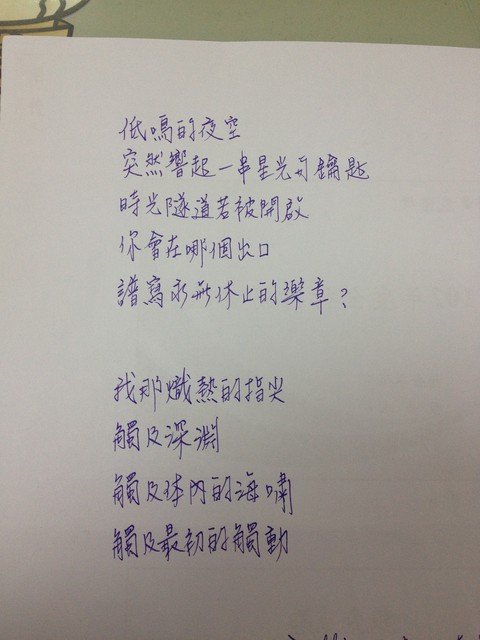 低鳴的夜空
突然響起一串星光的鑰匙
時光隧道若被開啟
你會在哪個出口
譜寫永無休止的樂章?
我那熾熱的指尖
觸及深淵
觸及体內的海嘯
觸及最初的觸動